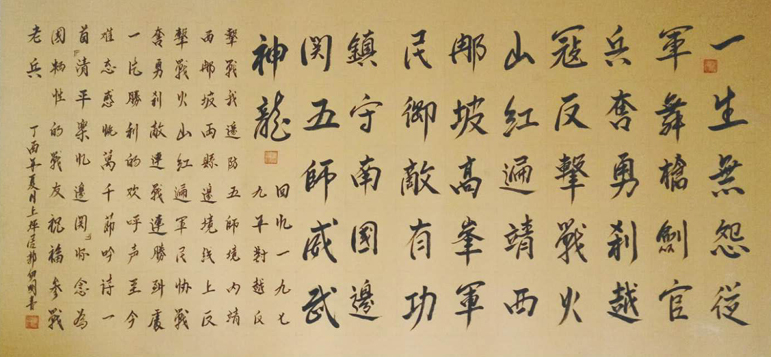 一生無怨從
軍舞槍劍官
兵奮勇刹越
冦反擊戰火
山紅遍靖西
那坡高峯軍
民御敵有功
鎮守南國邊
関五師威武
神龍
回忆一九七
九年對越反
擊戰我邊防五師境内靖
西那坡两縣邊境线上反
擊戰火山紅遍軍民协戰
奮勇刹敵連戰連勝到處
一片勝利的欢呼声至今
难忘感慨萬千節吟诗一
首清平樂忆邊関怀念為
國牺牲的戰友祝福参戰
老兵
丁酉年夏月上